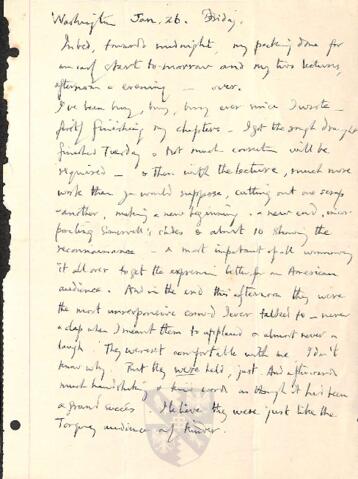 Washington Jan. 26. Friday.
In bed, towards midnight, my packing done for
an early start to-morrow and my two lectures,
afternoon & evening — over.
I've been busy, busy, busy ever since I wrote —
firstly finishing my chapters — I got the rough draught
finished Tuesday & not much correction will be
required — & then with the lecture, much more
work than you would suppose, cutting out one scrap
another, making a new beginning & a new end, incor-
porating Simonwell's slides & almost 10 showing the
reconnaissance — & most important of all
it all over to get the expression better for an American
audience. And in the end this afternoon they were
the most unresponsive crowd I ever talked to — never
a clap when I meant them to applaud & almost never a
laugh. They weren't comfortable with me. I don't
know why. But they were held, just. And afterwards
much handshaking & kind words as though it had been
a grand succès. I believe they were just like the
Torquay audience only kinder.